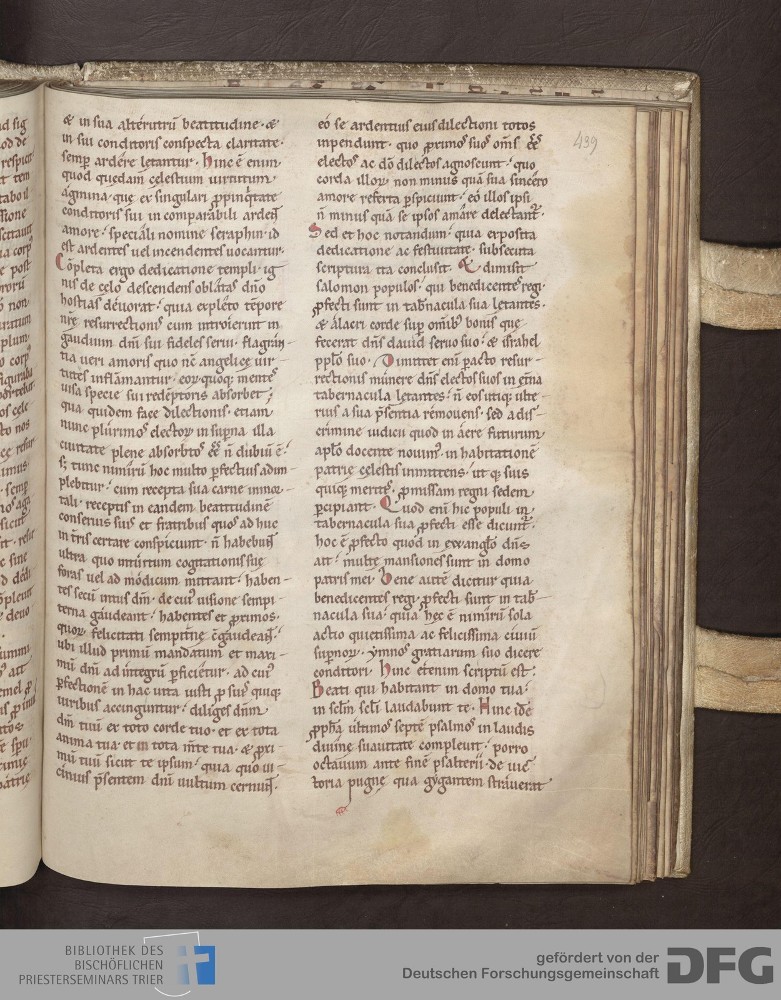 & in sua alterutrũ beatitudine · &
in sui conditoris conspecta claritate ·
semp ardere letantur · hinc ẽ enim
quod quędam cęlestium uirtutum
agmina · que ex singulari ppinqitate
conditoris sui in comparabili ardent
amore · speciali nomine seraphin · id
est ardentes uel incendentes uocantur ·
Cõpleta ergo dedicatione templi · ig
nis de cęlo descendens oblatas dño
hostias deuorat · quia expleto tẽpore
nrẽ resurrectionis cum introierint in
gaudium dñi sui fideles serui · flagran
tia ueri amoris quo nc̃ angelicę uir
tutes inflãmantur · eorũ quoq; mentes
uisa specie sui redẽptoris absorbet ;
qua quidem face dilectionis · etiam
nunc plurimos electorũ in supna illa
ciuitate plene absorbtos ẽẽ ñ dubiũ ẽ ·
s; tunc nimirũ hoc multo pfectius adim
plebitur · cum recepta sua carne inmor
tali · receptis in eandem beatitudinẽ
conseruis suis et fratribus quos ad huc
in tris certare conspiciunt · ñ habebunt
ultra quo intuitum cogitationis suę
foras uel ad modicum mittant · haben
tes secũ intus dñm · de cuius uisione sempi
terna gaudeant · habentes et primos ·
quorũ felicitati sempitnę cgaudeant ·
ubi illud primũ mandatum et maxi
mũ dñi ad integrũ pficietur · ad cuius
pfectionẽ in hac uita iusti p suis quiq;
uiribus accinguntur · diliges dñm
dm̃ tuũ ex toto corde tuo · et ex tota
anima tua · et in tota mẽte tua · & pxi
mũ tuũ sicut te ipsum · quia quo ui
cinius psentem dnĩ uultum cernunt
eo se ardentius eius dilectioni totos
inpendunt · quo primos suos oms̃ ẽẽ
electos ac dõ dilectos agnoscunt · quo
corda illorũ non minus quã sua sincero
amore referta pspiciunt · eo illos ipsi
ñ minus quã se ipsos amare delectant ·
Sed et hoc notandum · quia exposita
dedicatione ac festiuitate · subsecuta
scriptura ita conclusit · & dimisit
salomon populos · qui benedicentes regi ·
pfecti sunt in tabnacula sua letantes ·
& alacri corde sup omibus bonis que
fecerat dñs dauid seruo suo · & israhel
pplo suo · Dimittet enĩ pacto resur
rectionis munere dñs electos suos in etna
tabernacula letantes · ñ eos utiq; ulte
rius a sua psentia remouens · sed a dis
crimine iudicii quod in aere futurum
aplo docente nouim̃ · in habitationẽ
patrię cęlestis inmittens · ut q; suis
quiq; meritis · pmissam regni sedem
pcipiant · Quod enĩ hic populi in
tabernacula sua pfecti esse dicunt ·
hoc ẽ pfecto quod in ewanglo dñs
ait · multę mansiones sunt in domo
patris mei · bene autẽ dicitur quia
benedicentes regi pfecti sunt in tab
nacula sua · quia hęc ẽ nimirũ sola
actio quietissima ac felicissima ciuiũ
supnorũ · ymnos gratiarum suo dicere
conditori · hinc etenim scriptũ est ·
Beati qui habitant in domo tua ·
in sc̃lm sc̃li laudabunt te · Hinc idẽ
ppha ultimos septẽ psalmos in laudis
diuinę suauitate compleuit · porro
octauum ante finẽ psalterii · de uic
toria pugnę qua gygantem strauerat
439
BIBLIOTHEK DES
BISCHÖFLICHEN
PRIESTERSEMINARS TRIER
gefördert von der
Deutschen Forschungsgemeinschaft
DFG